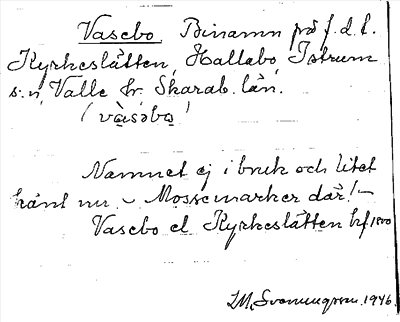 Vasebo. Binamn på f.d. t.
Kyrkeslätten, Hallabo, Istrum
s:n, Valle hr. Skarab. län.
(vàsəbo)
Namnet ej i bruk och litet
känt nu. – Mossemarker där! –
Vasebo el. Kyrkeslätten 1800
1946.